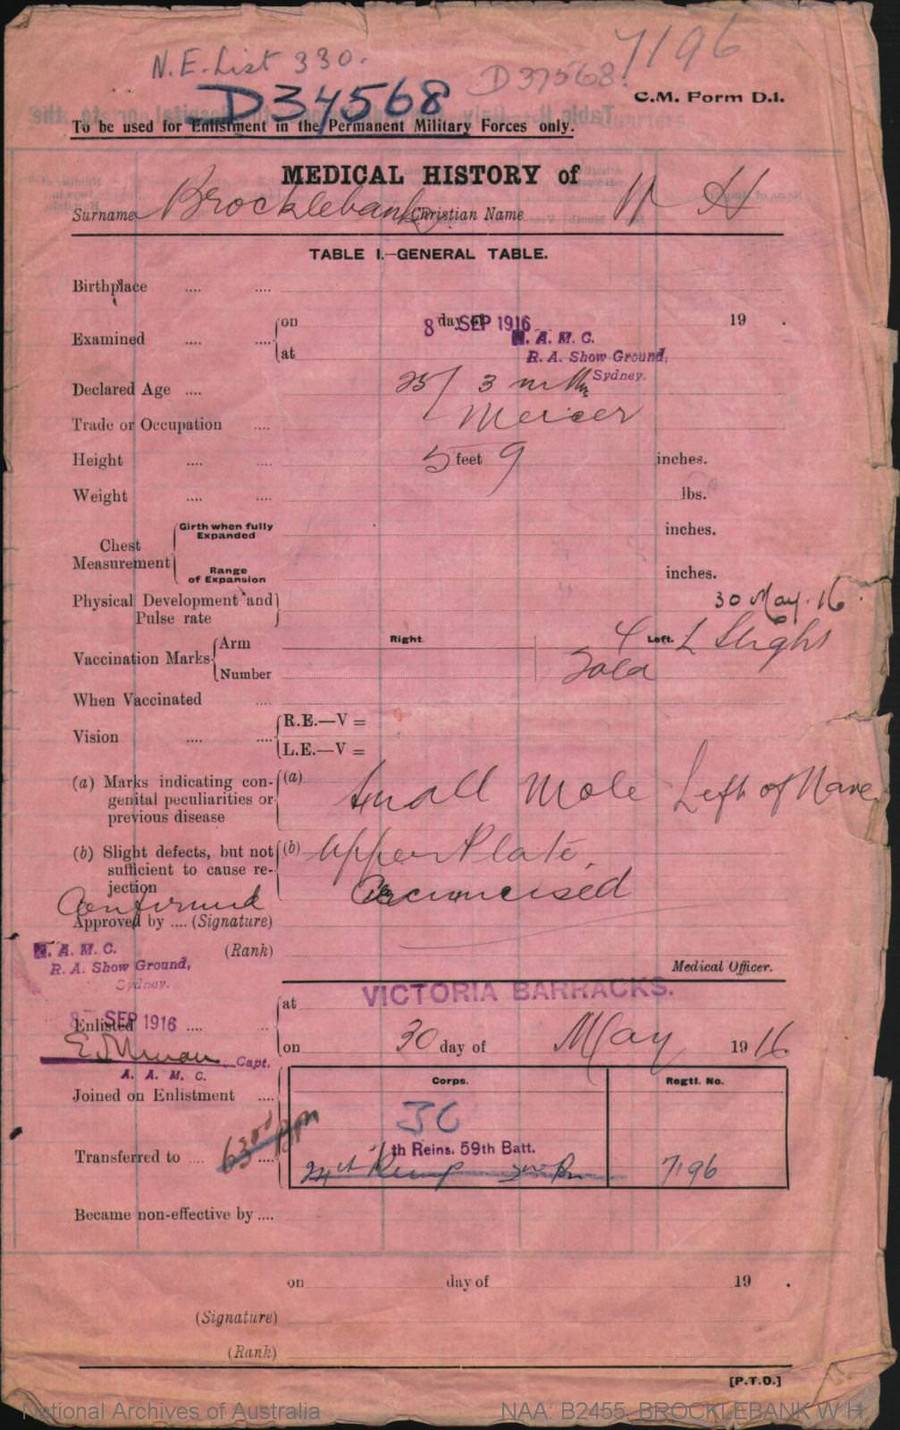 N.E. List 330.
7196
D 37568
D34568
C.M. Form D.I.
To be used for Enlistment in the Permanent Military Forces only.
MEDICAL HISTORY of
Surname Brocklebank Christian Name W H
TABLE I.—GENERAL TABLE.
Birthplace .... ....
Examined .... .... on 8 day of SEP 1916 19 .
at A. M. C.
R. A. Show Ground,
Sydney.
Declared Age .... 25/ 3 mths
Trade or Occupation .... Mercer
Height .... .... 5 feet 9 inches.
Weight .... .... lbs.
Chest Measurement Girth when fully Expanded inches.
Range of Expansion inches.
30 May. 16
Physical Development and Pulse rate
Vaccination Marks Arm Right. 4 Left. L Slight
Number
When Vaccinated ....
Vision .... .... R.E.—V =
L.E.—V =
(a) Marks indicating con- (a) Small Mole Left of Nave
genital peculiarities or
previous disease
(b) Slight defects, but not (b) Upper Plate,
sufficient to cause re-
jection Circumcised
Confirmed
Approved by .... (Signature)
(Rank)
A. M. C.
R. A. Show Ground,
Sydney.
Medical Officer.
at VICTORIA BARRACKS.
SEP 1916
Enlisted .... ....
on 30 day of May 19 16
Capt.
A. A. M. C.
Corps. Regtl. No.
Joined on Enlistment ....
th Reins. 59th Batt.
Transferred to .... .... 7196
Became non-effective by ....
on day of 19 .
(Signature)
(Rank)
[P.T.O.]
National Archives of Australia NAA: B2455, BROCKLEBANK W H